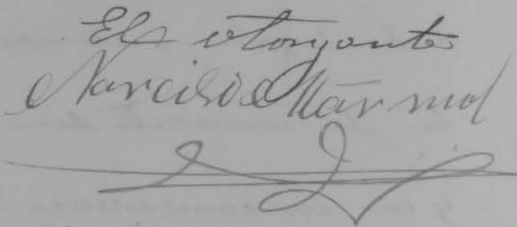 El otorgante
Narciso Mármol